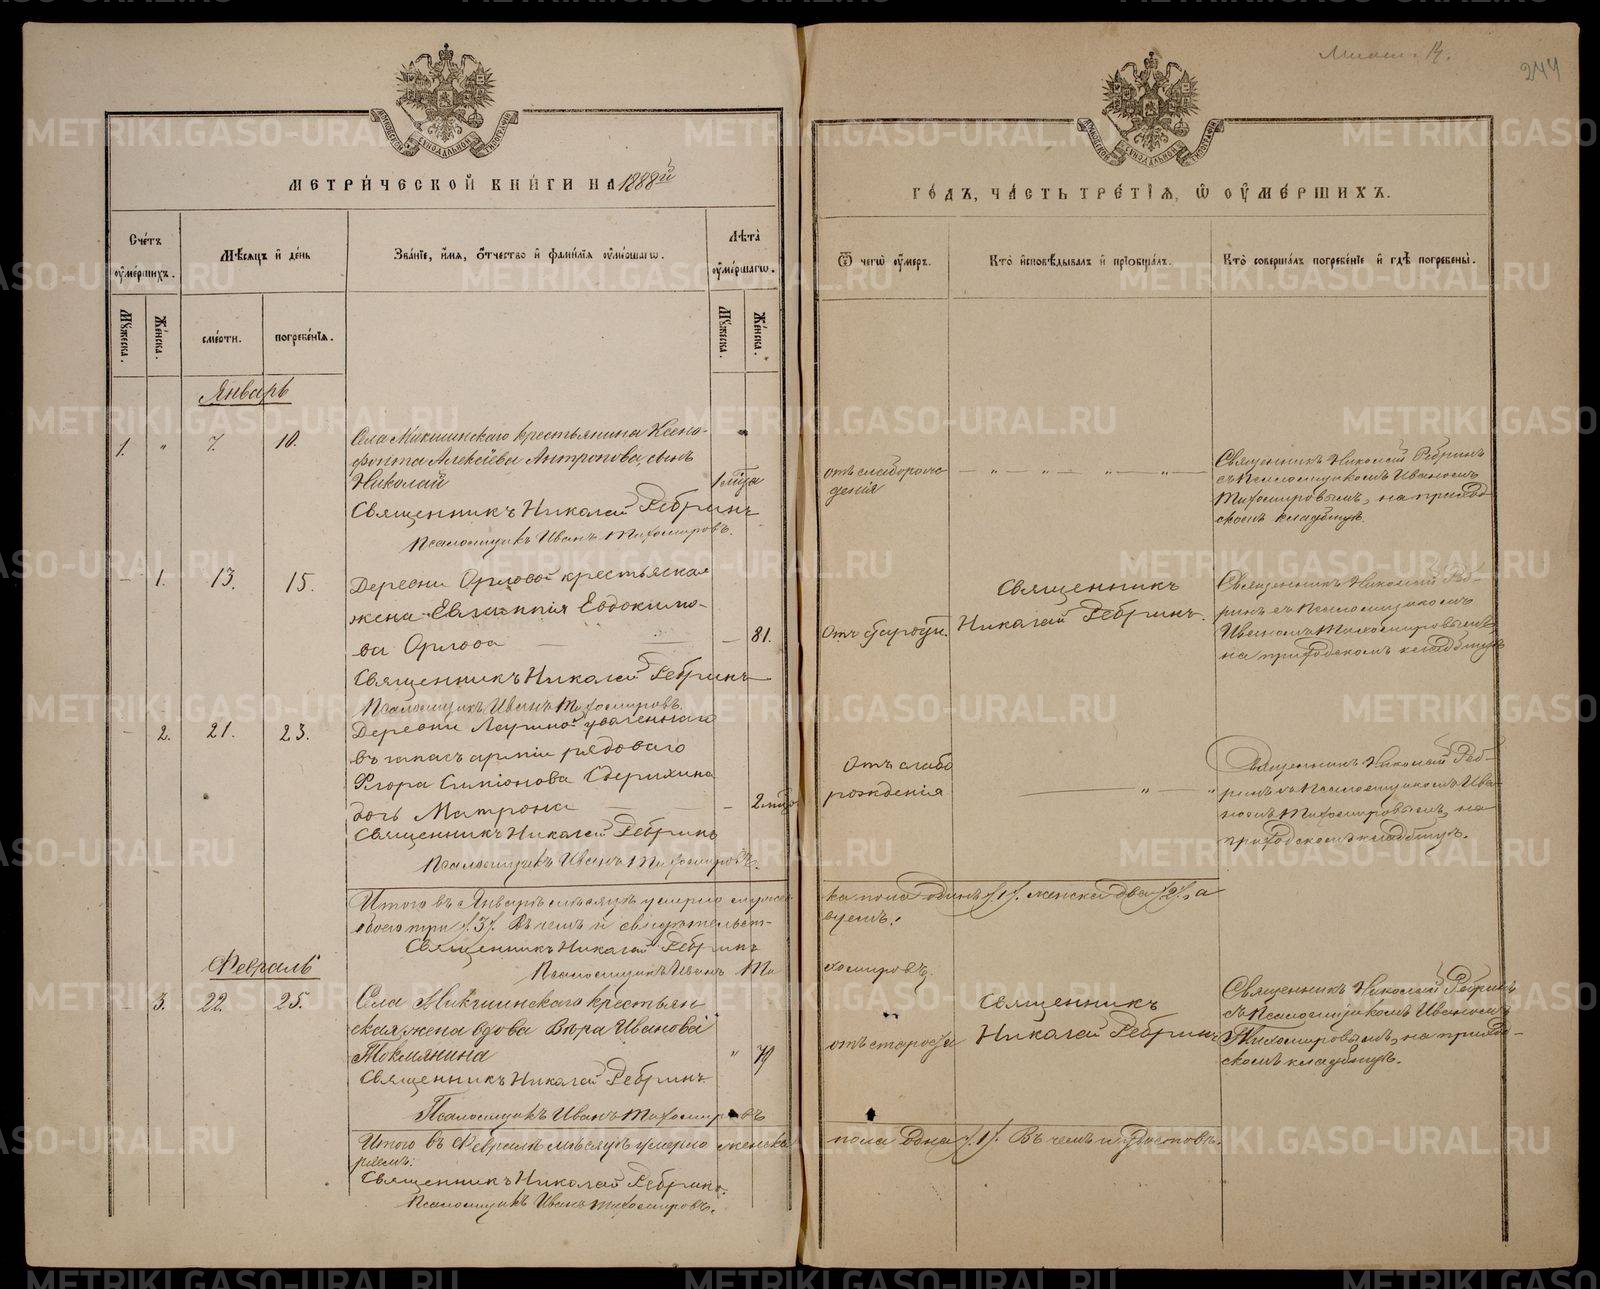 244
МЕТРИЧЕСКОЙ КНИГИ НА 1888й
ГОДЪ, ЧАСТЬ ТРЕТІЯ, Ѡ ОУМЕРШИХЪ.
Счетъ оумершихъ.
Мѣсяцъ и день
Званіе, имя, отчество и фамилія оумершагѡ.
Лѣта оумершагѡ.
Ѿ чегѡ оумеръ.
Кто исповѣдывалъ и пріобщалъ.
Кто совершалъ погребеніе и гдѣ погребены.
Мужеска.
Женска.
смерти.
погребенія.
Мужеска.
Женска.
Январь
1. " 7. 10.
Села Микшинскаго крестьянина Ксено-
фонта Алексіева Антропова, сынъ
Николай
Священникъ Николай Ребринъ
Псаломщикъ Иванъ Тихомировъ.
отъ слаборож-
денія
Священникъ Николай Ребринъ
съ Псаломщикомъ Иваномъ
Тихомировымъ, на приход-
скомъ кладбищѣ.
- 1. 13. 15.
Деревни Орловой крестьяская
жена Евлампія Евдокимо-
ва Орлова
- 81.
Священникъ Николай Ребринъ
Псаломщикъ Иванъ Тихомировъ.
Отъ старости.
Священникъ
Николай Ребринъ.
Священникъ Николай Реб-
ринъ съ Псаломщикомъ
Иваномъ Тихомировымъ,
на приходскомъ кладбищѣ
- 2. 21. 23.
Деревни уволеннаго
въ запасъ арміи рядоваго
Егора Симіонова
дочь Матрона
- 2
Священникъ Николай Ребринъ
Псаломщикъ Иванъ Тихомировъ.
Отъ слабо
рожденія
Священникъ Николай Реб-
ринъ съ Псаломщикомъ Ива-
номъ Тихомировымъ, на
приходскомъ кладбищѣ.
Итого въ Январѣ мѣсяцѣ умерло мужес-
ка пола одинъ /1/, женска два /2/, а
обоего три /3/. Въ чемъ и свидѣтельст-
вуемъ:
Священникъ Николай Ребринъ
Псаломщикъ Иванъ Ти
хомировъ.
Февраль
- 3. 22. 25.
Села Микшинскаго крестьян
ская жена вдова Вѣра Иванова
Токмянина
" 79
Священникъ Николай Ребринъ
Псаломщикъ Иванъ Тихомировъ
отъ старости
Священникъ
Николай Ребринъ
Священникъ Николай Ребринъ
съ Псаломщикомъ Иваномъ
Тихомировымъ, на приход-
скомъ кладбищѣ.
Итого въ Февралѣ мѣсяцѣ умерло женска
пола одна /1/. Въ чемъ и удостовѣ-
ряемъ:
Священникъ Николай Ребринъ.
Псаломщикъ Иванъ Тихомировъ.
METRIKI.GASO-URAL.RU